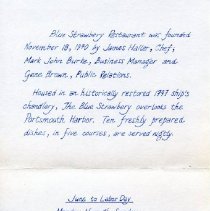 Blue Strawbery Restaurant was founded
November 18, 1970 by James Haller, Chef;
Mark John Burke, Business Manager and
Gene Brown, Public Relations.
Housed in an historically restored 1797 ship's
chandlery, The Blue Strawbery overlooks the
Portsmouth Harbor. Ten freshly prepared
dishes, in five courses, are served nightly.
June to Labor Day